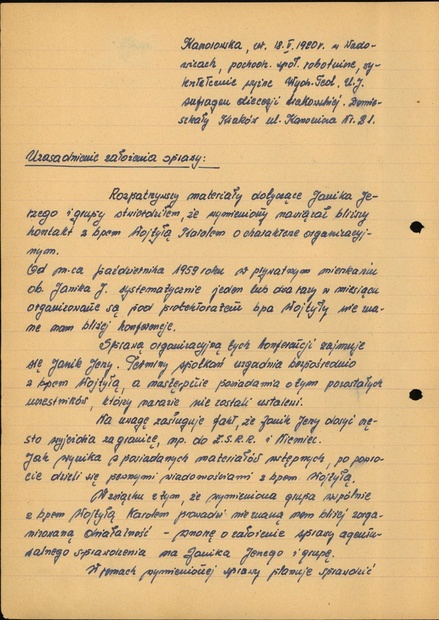 Kanorowska, ur. 18.V.1920r. w Wado-
wicach, pochodz. społ. robotnicze, wy-
kształcenie wyższe Wydz. Teol. U.J.
sufragan diecezji krakowskiej. Zamie-
szkały Kraków ul. Kanonicza Nr. 21.
Uzasadnienie założenia sprawy:
Rozpatrzywszy materiały dotyczące Janika Je-
rzego i grupy stwierdziłem, że wymieniony nawiązał bliższy
kontakt z bpem Wojtyłą Karolem o charakterze organizacyj-
nym.
Od m-ca października 1959 roku w prywatnym mieszkaniu
ob. Janika J. systematycznie jeden lub dwa razy w miesiącu
organizowane są pod protektoratem bpa Wojtyły nie zna-
ne nam bliżej konferencje.
Sprawą organizacyjną tych konferencji zajmuje
się Janik Jerzy. Terminy spotkań uzgadnia bezpośrednio
z bpem Wojtyłą, a następnie powiadamia o tym pozostałych
uczestników, którzy narazie nie zostali ustaleni.
Na uwagę zasługuje fakt, że Janik Jerzy dosyć czę-
sto wyjeżdża zagranicę, np. do Z.S.R.R. i Niemiec.
Jak wynika z posiadanych materiałów wstępnych, po powro-
cie dzieli się pewnymi wiadomościami z bpem Wojtyłą.
W związku z tym, że wymieniona grupa wspólnie
z bpem Wojtyłą Karolem prowadzi nieznaną nam bliżej zorga-
nizowaną działalność - wnoszę o założenie sprawy agentu-
ralnego sprawdzenia na Janika Jerzego i grupę.
W ramach wymienionej sprawy planuje sprawdzić